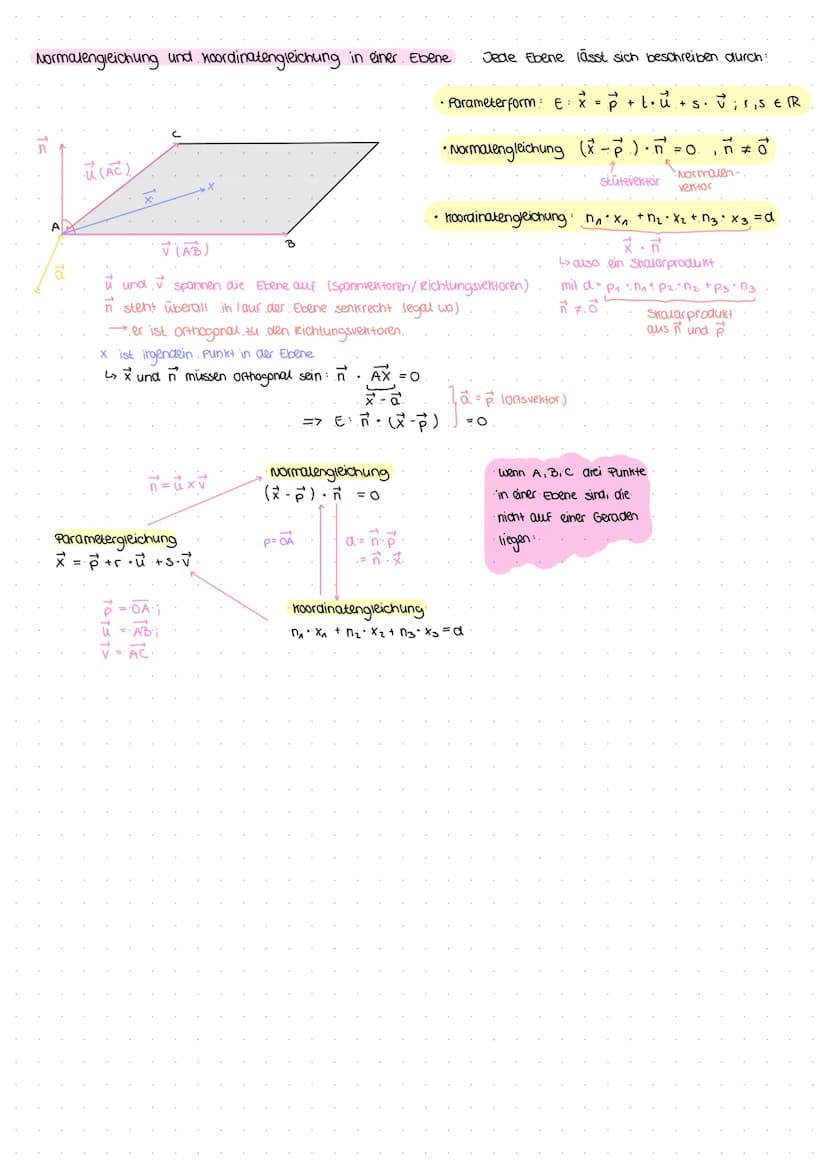 Normalengleichung und Koordinatengleichung in einer Ebene
Jede Ebene lässt sich beschreiben durch:
• Parameterform: E: x⃗ = p⃗ + t · u⃗ + s · v⃗ ; r, s ∈ ℝ
• Normalengleichung (x⃗ - p⃗) · n⃗ = 0 , n⃗ ≠ 0⃗
Stützvektor
Normalen-
vektor
• Koordinatengleichung: n₁ · x₁ + n₂ · x₂ + n₃ · x₃ = d
x⃗ · n⃗
↳ also ein Skalarprodukt
mit d = p₁ · n₁ + p₂ · n₂ + p₃ · n₃
n⃗ ≠ 0⃗
Skalarprodukt
aus n⃗ und p⃗
C
n⃗
u⃗ (AC⃗)
x⃗
X
A
v⃗ (AB⃗)
B
a⃗
u⃗ und v⃗ spannen die Ebene auf (Spannvektoren/Richtungsvektoren)
n⃗ steht überall in/auf der Ebene senkrecht (egal wo)
→ er ist orthogonal zu den Richtungsvektoren.
x ist irgendein Punkt in der Ebene
↳ x⃗ und n⃗ müssen orthogonal sein: n⃗ · AX⃗ = 0
x⃗ - a⃗
} a⃗ = p⃗ (Ortsvektor)
=> E: n⃗ · (x⃗ - p⃗) = 0
Normalengleichung
(x⃗ - p⃗) · n⃗ = 0
n⃗ = u⃗ x v⃗
Parametergleichung
x⃗ = p⃗ + r · u⃗ + s · v⃗
p = OA⃗
d = n⃗ · p⃗
= n⃗ · x⃗
Koordinatengleichung
n₁ · x₁ + n₂ · x₂ + n₃ · x₃ = d
p⃗ = OA⃗ ;
u⃗ = AB⃗ ;
v⃗ = AC⃗
wenn A, B, C drei Punkte
in einer Ebene sind, die
nicht auf einer Geraden
liegen: